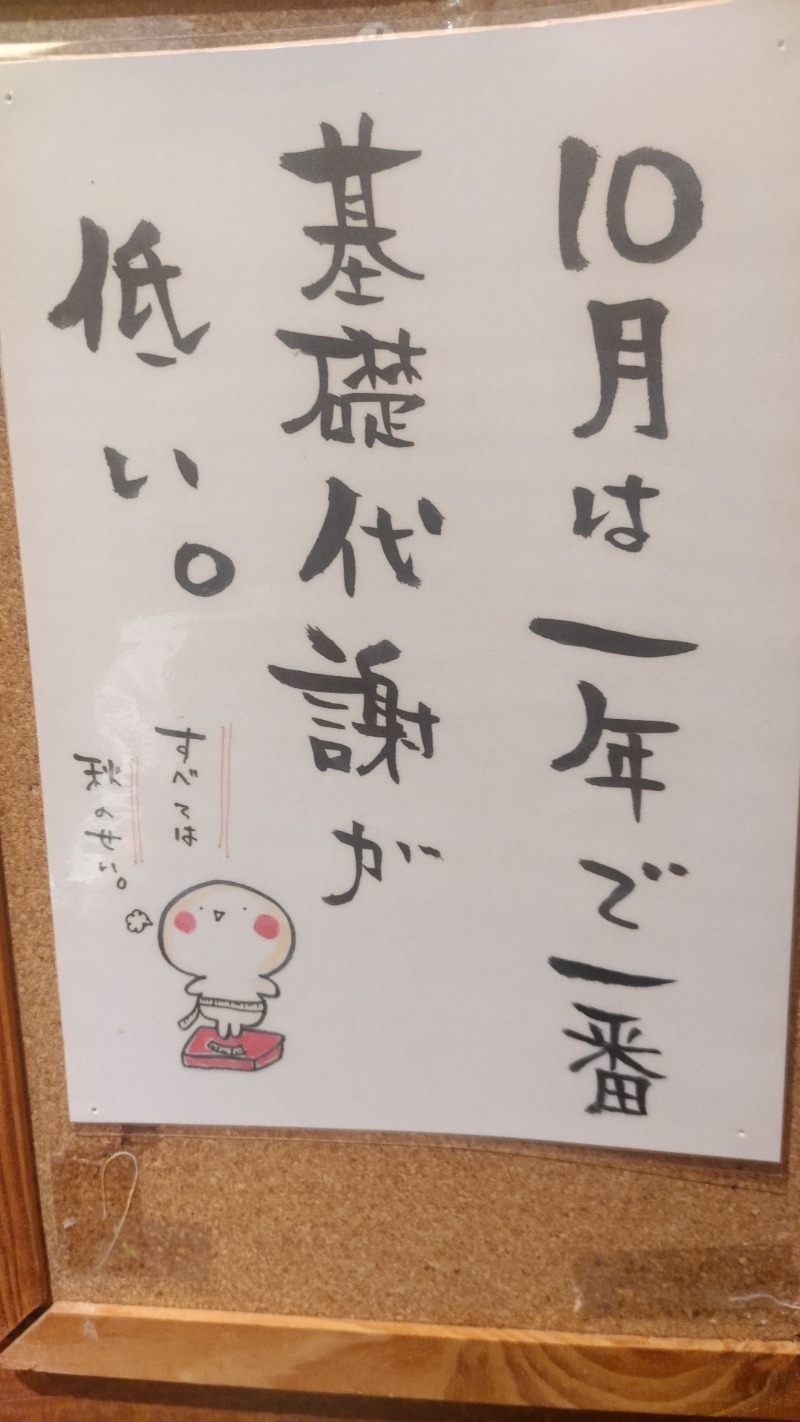 10月は一年で一番
基礎代謝が
低い。
すべては
秋のせい。